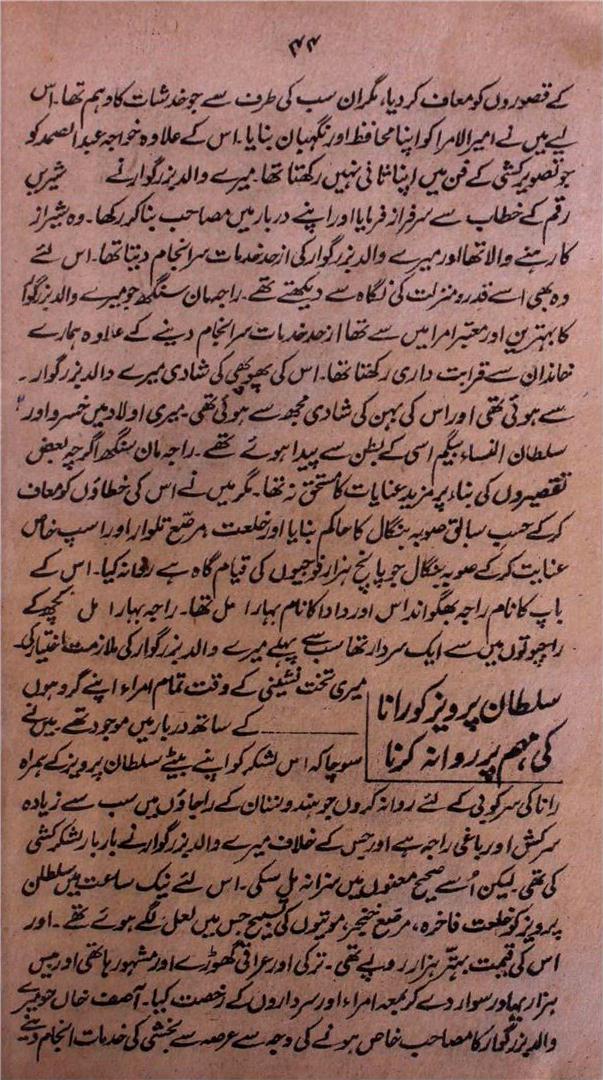 ۴۴
کے قصوروں کو معاف کر دیا، مگر ان سب کی طرف سے جو خدشات کا وہم تھا۔ اس
لیے میں نے امیر الامرا کو اپنا محافظ اور نگہبان بنایا۔ اس کے علاوہ خواجہ عبدالصمد کو
جو تصویر کشی کے فن میں اپنا ثانی نہیں رکھتا تھا۔ میرے والد بزرگوار نے شیریں
رقم کے خطاب سے سرفراز فرمایا اور اپنے دربار میں مصاحب بنا کر رکھا۔ وہ شیراز
کا رہنے والا تھا اور میرے والد بزرگوار کی ازحد خدمات سرانجام دیتا تھا۔ اس لئے
وہ بھی اسے قدر و منزلت کی نگاہ سے دیکھتے تھے۔ راجہ مان سنگھ جو میرے والد بزرگوار
کا بہترین اور معتبر امرا میں سے تھا ازحد خدمات سرانجام دینے کے علاوہ ہمارے
خاندان سے قرابت داری رکھتا تھا۔ اس کی پھوپھی کی شادی میرے والد بزرگوار۔
سے ہوئی تھی اور اس کی بہن کی شادی مجھ سے ہوئی تھی۔ میری اولاد میں خسرو اور
سلطان النساء بیگم اسی کے بطن سے پیدا ہوئے تھے۔ راجہ مان سنگھ اگرچہ بعض
تقصیروں کی بناء پر مزید عنایات کا مستحق نہ تھا۔ مگر میں نے اس کی خطاؤں کو معاف
کر کے حسب سابق صوبہ بنگال کا حاکم بنایا اور خلعت، مرصّع تلوار اور اسپ خاص
عنایت کر کے صوبہ بنگال جو پانچ ہزار فوجیوں کی قیام گاہ ہے روانہ کیا۔ اس کے
باپ کا نام راجہ بھگوانداس اور دادا کا نام بہارا مل تھا۔ راجہ بہارا مل کچھ کے
راجپوتوں میں سے ایک سردار تھا سب سے پہلے میرے والد بزرگوار کی ملازمت اختیار کی۔
سلطان پرویز کو رانا
کی مہم پر روانہ کرنا
میری تخت نشینی کے وقت تمام امراء اپنے گروہوں
کے ساتھ دربار میں موجود تھے۔ میں نے
سوچا کہ اس لشکر کو اپنے بیٹے سلطان پرویز کے ہمراہ
رانا کی سرکوبی کے لئے روانہ کروں جو ہندوستان کے راجاؤں میں سب سے زیادہ
سرکش اور باغی راجہ ہے اور جس کے خلاف میرے والد بزرگوار نے بار بار لشکر کشی
کی تھی۔ لیکن اُسے صحیح معنوں میں سزا نہ مل سکی۔ اس لئے نیک ساعت میں سلطان
پرویز کو خلعت فاخرہ، مرصّع خنجر، موتیوں کی تسبیح جس میں لعل لگے ہوئے تھے۔ اور
اس کی قیمت بہتّر ہزار روپے تھی۔ ترکی اور عراقی گھوڑے اور مشہور ہاتھی اور بیس
ہزار بہادر سوار دے کر بمعہ امراء اور سرداروں کے رخصت کیا۔ آصف خاں جو میرے
والد بزرگوار کا مصاحب خاص ہونے کی وجہ سے عرصہ سے بخشی کی خدمات انجام دیتے